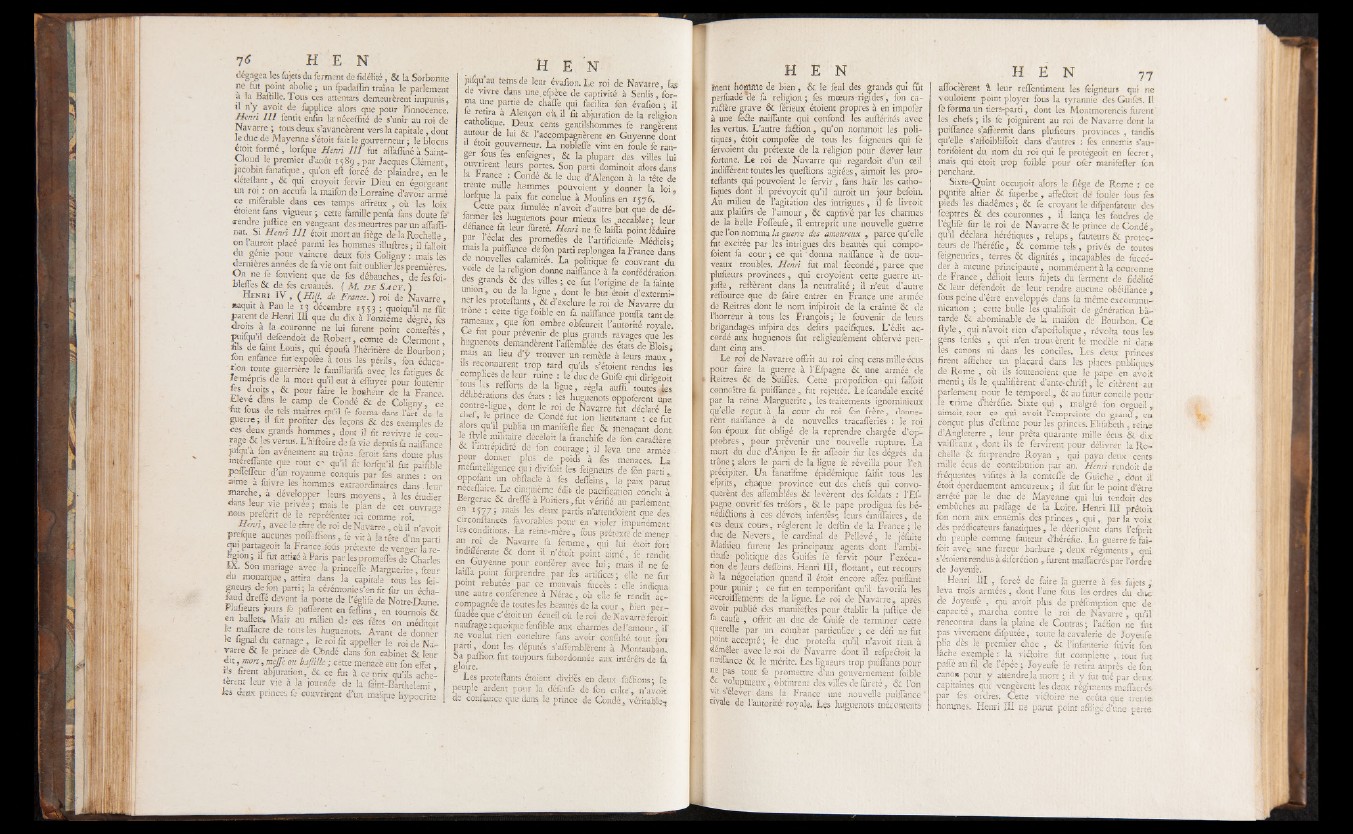 76 H E N
dégagea les sujets du serment de fidélité, & la Sorbonne
ne fut point abolie ; un spadassin traîna le parlement
à la Bastille. Tous ces attentats demeurèrent impunis,
il n'y avoit de supplice alors que pour l'innocence.
Henri III sentit enfin la nécessité de s'unir au roi de
Navarre ; tous deux s'avancèrent vers la capitale, dont
le duc de Mayenne s'étoit fait le gouverneur ; le blocus
étoit formé, lorsque Henri III fut assassiné à Saint-
Cloud le premier d'août 1589, par Jacques Clément,
jacobin fanatique, qu'on est forcé de plaindre, en le
détestant, & qui croyoit servir Dieu en égorgeant
un roi : on accusa la maison de Lorraine d'avoir armé
ce misérable dans ces temps affreux, où les loix
étoient sans vigueur ; cette famille pensa sans doute se
rendre justice en vengeant des meurtres par un assassi-
nat. Si Henri III étoit mort au siège de la Rochelle,
on l'auroit placé parmi les hommes illustres ; il falloit
du génie pour vaincre deux fois Coligny : mais les
dernières années de sa vie ont fait oublier les premières.
On ne se souvient que de ses débauches, de ses foi-
blesses & de ses cruautés. ( M. DE SACY. )
HENRI IV, (Hist. de France.) roi de Navarre,
naquit à Pau le 13 décembre 1553 ; quoiqu'il ne fût
parent de Henri III que du dix à l'onzième dégré, ses
droits à la couronne ne lui furent point contestés,
puisqu'il descendoit de Robert, comte de Clermont,
fils de saint Louis, qui épousa l'héritière de Bourbon,
son enfance fut exposée à tous les périls, son éduca-
tion toute guerrière le familiarisa avec les fatigues &
le mépris de la mort qu'il eut à essuyer pour soutenir
ses droits, & pour faire le bonheur de la France.
Élevé dans le camp de Condé & de Coligny, ce
fut sous de tels maîtres qu'il se forma dans l'art de la
guerre ; il sut profiter des leçons & des exemples de
ces deux grands hommes, dont il fit revivre le cou-
rage & les vertus. L'histoire de sa vie depuis sa naissance
jusqu'à son avénement au trône seroit sans doute plus
intéressante que tout ce qu'il fit lorsqu'il fut paisible
possesseur d'un royaume conquis par ses armes : on
aime à suivre les hommes extraordinaires dans leur
marche, à développer leurs moyens, à les étudier
dans leur vie privée ; mais le plan de cet ouvrage
nous prescrit de le représenter ici comme roi.
Henri, avec le titre de roi de Navarre, où il n'avoit
presque aucunes possessions, se vit à la tête d'un parti
qui partageoit la France sous prétexte de venger la re-
ligion ; il fut attiré à Paris par les promesses de Charles
IX. Son mariage avec la princesse Marguerite, sœur
du monarque, attira dans la capitale tous les sei-
gneurs de son parti ; la cérémonie s'en fit sur un écha-
faud dressé devant la porte de l'église de Notre-Dame.
Plusieurs jours se passèrent en festins, en tournois &
en ballets. Mais au milieu de ces fêtes on méditoit
le massacre de tous les huguenots. Avant de donner
le signal du carnage, le roi fit appeller le roi de Na-
varre & le prince de Condé dans son cabinet & leur
dit, mort, messe ou bastille ; cette menace eut son effet,
ils firent abjuration, & ce fut à ce prix qu'ils ache-
tèrent leur vie à la journée de la saint-Barthelemi,
les deux princes se couvrirent d'un masque hypocrite
H E N
jusqu'au tems de leur évasion. Le roi de Navarre, las
de vivre dans une espèce de captivité à Senlis, for-
ma une partie de chasse qui facilita son évasion ; il
se retira à Alençon où il fit abjuration de la religion
catholique. Deux cents gentilshommes se rangèrent
autour de lui & l'accompagnèrent en Guyenne dont
il étoit gouverneur. La noblesse vint en foule se ran-
ger sous ses enseignes, & la plupart des villes lui
ouvrirent leurs portes. Son parti dominoit alors dans
la France : Condé & le duc d'Alençon à la tête de
trente mille hommes pouvoient y donner la loi,
lorsque la paix fut conclue à Moulins en 1576.
Cette paix simulée n'avoit d'autre but que de dé-
sarmer les huguenots pour mieux les accabler ; leur
défiance fit leur sûreté. Henri ne se laissa point séduire
par l'éclat des promesses de l'artificieuse Médicis ;
mais la puissance de son parti replongea la France dans
de nouvelles calamités. La politique se couvrant du
voile de la religion donne naissance à la confédération
des grands & des villes ; ce fut l'origine de la sainte
union, ou de la ligne, dont le but étoit d'extermi-
ner les protestants, & d'exclure le roi de Navarre du
trône : cette tige foible en sa naissance poussa tant de
rameaux, que son ombre obscurcit l'autorité royale.
Ce fut pour prévenir de plus grands ravages que les
huguenots demandèrent l'assemblée des états de Blois ;
mais au lieu d'y trouver un remède à leurs maux,
ils reconnurent trop tard qu'ils s'étoient rendus les
complices de leur ruine : le duc de Guise qui dirigeoit
tous les ressorts de la ligue, régla aussi toutes les
délibérations des états : les huguenots opposèrent une
contre-ligue, dont le roi de Navarre fut déclaré le
chef, le prince de Condé fut son lieutenant : ce fut
alors qu'il publia un manifeste fier & menaçant dont
le style militaire déceloit la franchise de son caractère
& l'intrépidité de son courage ; il leva une armée
pour donner plus de poids à ses menaces. La
mésintelligence qui divisoit les seigneurs de son parti,
opposant un obstacle à ses desseins, la paix parut
nécessaire. Le cinquième édit de pacification conclu à
Bergerac & dressé à Poitiers, fut vérifié au parlement
en 1577 ; mais les deux partis n'attendoient que des
circonstances favorables pour en violer impunément
les conditions. La reine-mère, sous prétexte de mener
au roi de Navarre sa femme, qui lui étoit fort
indifférente & dont il n'étoit point aimé, se rendit
en Guyenne pour conférer avec lui ; mais il ne se
laissa point surprendre par ses artifices ; elle ne fut
point rebutée par ce mauvais succès : elle indiqua
une autre conférence à Nérac, où elle se rendit ac-
compagnée de toutes les beautés de la cour, bien per-
suadée que c'étoit un écueil où le roi de Navarre feroit
naufrage : quoique sensible aux charmes de l'amour, il
ne voulut rien conclure sans avoir consulté tout son
parti, dont les députés s'assemblèrent à Montauban.
Sa passion fut toujours subordonnée aux intérêts de sa
gloire.
Les protestants étoient divisés en deux factions ; le
peuple ardent pour la défense de son culte, n'avoit
de confiance que dans le prince de Condé, véritable-
H E N
ment homme de bien, & le seul des grands qui fût
persuadé de sa religion ; ses mœurs rigides, son ca-
ractère grave & sérieux étoient propres à en imposer
à une secte naissante qui confond les austérités avec
les vertus. L'autre faction, qu'on nommoit les poli-
tiques, étoit composée de tous les seigneurs qui se
servoient du prétexte de la religion pour élever leur
fortune. Le roi de Navarre qui regardoit d'un œil
indifférent toutes les questions agitées, aimoit les pro-
testants qui pouvoient le servir, sans haïr les catho-
liques dont il prévoyoit qu'il auroit un jour besoin.
Au milieu de l'agitation des intrigues, il se livroit
aux plaisirs de l'amour, & captivé par les charmes
de la belle Fosseuse, il entreprit une nouvelle guerre
que l'on nomma la guerre des amoureux, parce qu'elle
fut excitée par les intrigues des beautés qui compo-
soient sa cour ; ce qui donna naissance à de nou-
veaux troubles. Henri fut mal secondé, parce que
plusieurs provinces, qui croyoient cette guerre in-
juste, restèrent dans la neutralité ; il n'eut d'autre
ressource que de faire entrer en France une armée
de Reitres dont le nom inspiroit de la crainte & de
l'horreur à tous les François ; le souvenir de leurs
brigandages inspira des desirs pacifiques. L'édit ac-
cordé aux huguenots fut religieusement observé pen-
dant cinq ans.
Le roi de Navarre offrit au roi cinq cens mille écus
pour faire la guerre à l'Espagne & une armée de
Reitres & de Suisses. Cette proposition qui faisoit
connoître sa puissance, fut rejettée. Le scandale excité
par la reine Marguerite, les traitements ignominieux
qu'elle reçut à la cour du roi son frère, donnè-
rent naissance à de nouvelles tracasseries : le roi
son époux fut obligé de la reprendre chargée d'op-
probres, pour prévenir une nouvelle rupture. La
mort du duc d'Anjou le fit asseoir sur les dégrés du
trône ; alors le parti de la ligue se réveilla pour l'en
précipiter. Un fanatisme épidémique saisit tous les
esprits, chaque province eut des chefs qui convo-
quèrent des assemblées & levèrent des soldats : l'Es-
pagne ouvrit ses trésors, & le pape prodigua ses bé-
nédictions à ces dévots insensés ; leurs émissaires, de
ces deux cours, réglerent le destin de la France ; le
duc de Nevers, le cardinal de Pellevé, le jésuite
Mathieu furent les principaux agents dont l'ambi-
tieuse politique des Guises se servit pour l'exécu-
tion de leurs desseins. Henri III, flottant, eut recours
à la négociation quand il étoit encore assez puissant
pour punir ; ce fut en temporisant qu'il favorisa les
accroissements de la ligue. Le roi de Navarre, après
avoir publié des manifestes pour établir la justice de
sa cause, offrit au duc de Guise de terminer cette
querelle par un combat particulier ; ce défi ne fut
point accepté ; le duc protesta qu'il n'avoit rien à
démêler avec le roi de Navarre dont il respectoit la
naissance & le mérite. Les ligueurs trop puissants pour
ne pas tout se promettre d'un gouvernement foible
& voluptueux, obtinrent des villes de sûreté, & l'on
vit s'élever dans la France une nouvelle puissance
rivale de l'autorité royale. Les huguenots mécontents
H E N 77
associèrent à leur ressentiment les seigneurs qui ne
vouloient point ployer sous la tyrannie des Guises. Il
se forma un tiers-parti, dont les Montmorencis furent
les chefs ; ils se joignirent au roi de Navarre dont la
puissance s'affermit dans plusieurs provinces, tandis
qu'elle s'affoiblissoit dans d'autres : ses ennemis s'au-
torisoient du nom du roi qui le protégeoit en secret,
mais qui étoit trop foible pour oser manifester son
penchant.
Sixte-Quint occupoit alors le siége de Rome : ce
pontife altier & superbe, affectoit de fouler sous ses
pieds les diadêmes ; & se croyant le dispensateur des
sceptres & des couronnes, il lança les foudres de
l'église sur le roi de Navarre & le prince de Condé,
qu'il déclara hérétiques, relaps, fauteurs & protec-
teurs de l'hérésie, & comme tels, privés de toutes
seigneuries, terres & dignités, incapables de succé-
der à aucune principauté, nommément à la couronne
de France, délioit leurs sujets du serment de fidélité
& leur défendoit de leur rendre aucune obéissance,
sous peine d'être enveloppés dans la même excommu-
nication ; cette bulle les qualifioit de génération bâ-
tarde & abominable de la maison de Bourbon. Ce
style, qui n'avoit rien d'apostolique, révolta tous les
gens sensés, qui n'en trouvèrent le modèle ni dans
les canons ni dans les conciles. Les deux princes
firent afficher un placard dans les places publiques
de Rome, où ils soutenoient que le pape en avoit
menti ; ils le qualifièrent d'ante-christ, le citèrent au
parlement pour le temporel, & au futur concile pour
le crime d'hérésie. Sixte qui, malgré son orgueil,
aimoit tout ce qui avoit l'empreinte du grand, en
conçut plus d'estime pour les princes. Elisabeth, reine
d'Angleterre, leur prêta quarante mille écus & dix
vaisseaux, dont ils se servirent pour délivrer la Ro-
chelle & surprendre Royan, qui paya deux cents
mille écus de contribution par an. Henri rendoit de
fréquentes visites à la comtesse de Guiche, dont il
étoit éperduement amoureux ; il fut sur le point d'être
arrêté par le duc de Mayenne qui lui tendoit des
embûches au passage de la Loire. Henri III prêtoit
son nom aux ennemis des princes, qui, par la voix
des prédicateurs fanatiques, le décrioient dans l'esprit
du peuple comme fauteur d'hérésie. La guerre se fai-
soit avec une fureur barbare ; deux régiments, qui
s'étoient rendus à discrétion, furent massacrés par l'ordre
de Joyeuse.
Henri III, forcé de faire la guerre à ses sujets,
leva trois armées, dont l'une sous les ordres du duc
de Joyeuse, qui avoit plus de présomption que de
capacité, marcha contre le roi de Navarre, qu'il
rencontra dans la plaine de Coutras ; l'action ne fut
pas vivement disputée, toute la cavalerie de Joyeuse
plie dès le premier choc, & l'infanterie suivit son
lâche exemple : la victoire fut complette, tout fut
passé au fil de l'épée ; Joyeuse se retira auprès de son
canon pour y attendre la mort ; il y fut tué par deux
capitaines qui vengèrent les deux régiments massacrés
par ses ordres. Cette victoire ne coûta que trente
hommes. Henri III ne parut point affligé d'une perte